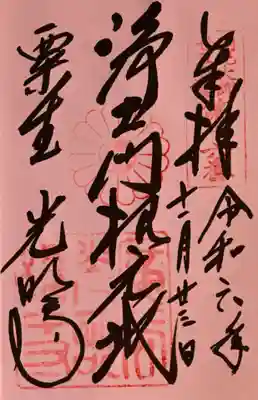 奉拝 令和六年
十一月廿三日
浄土門根元地
粟生 光明寺